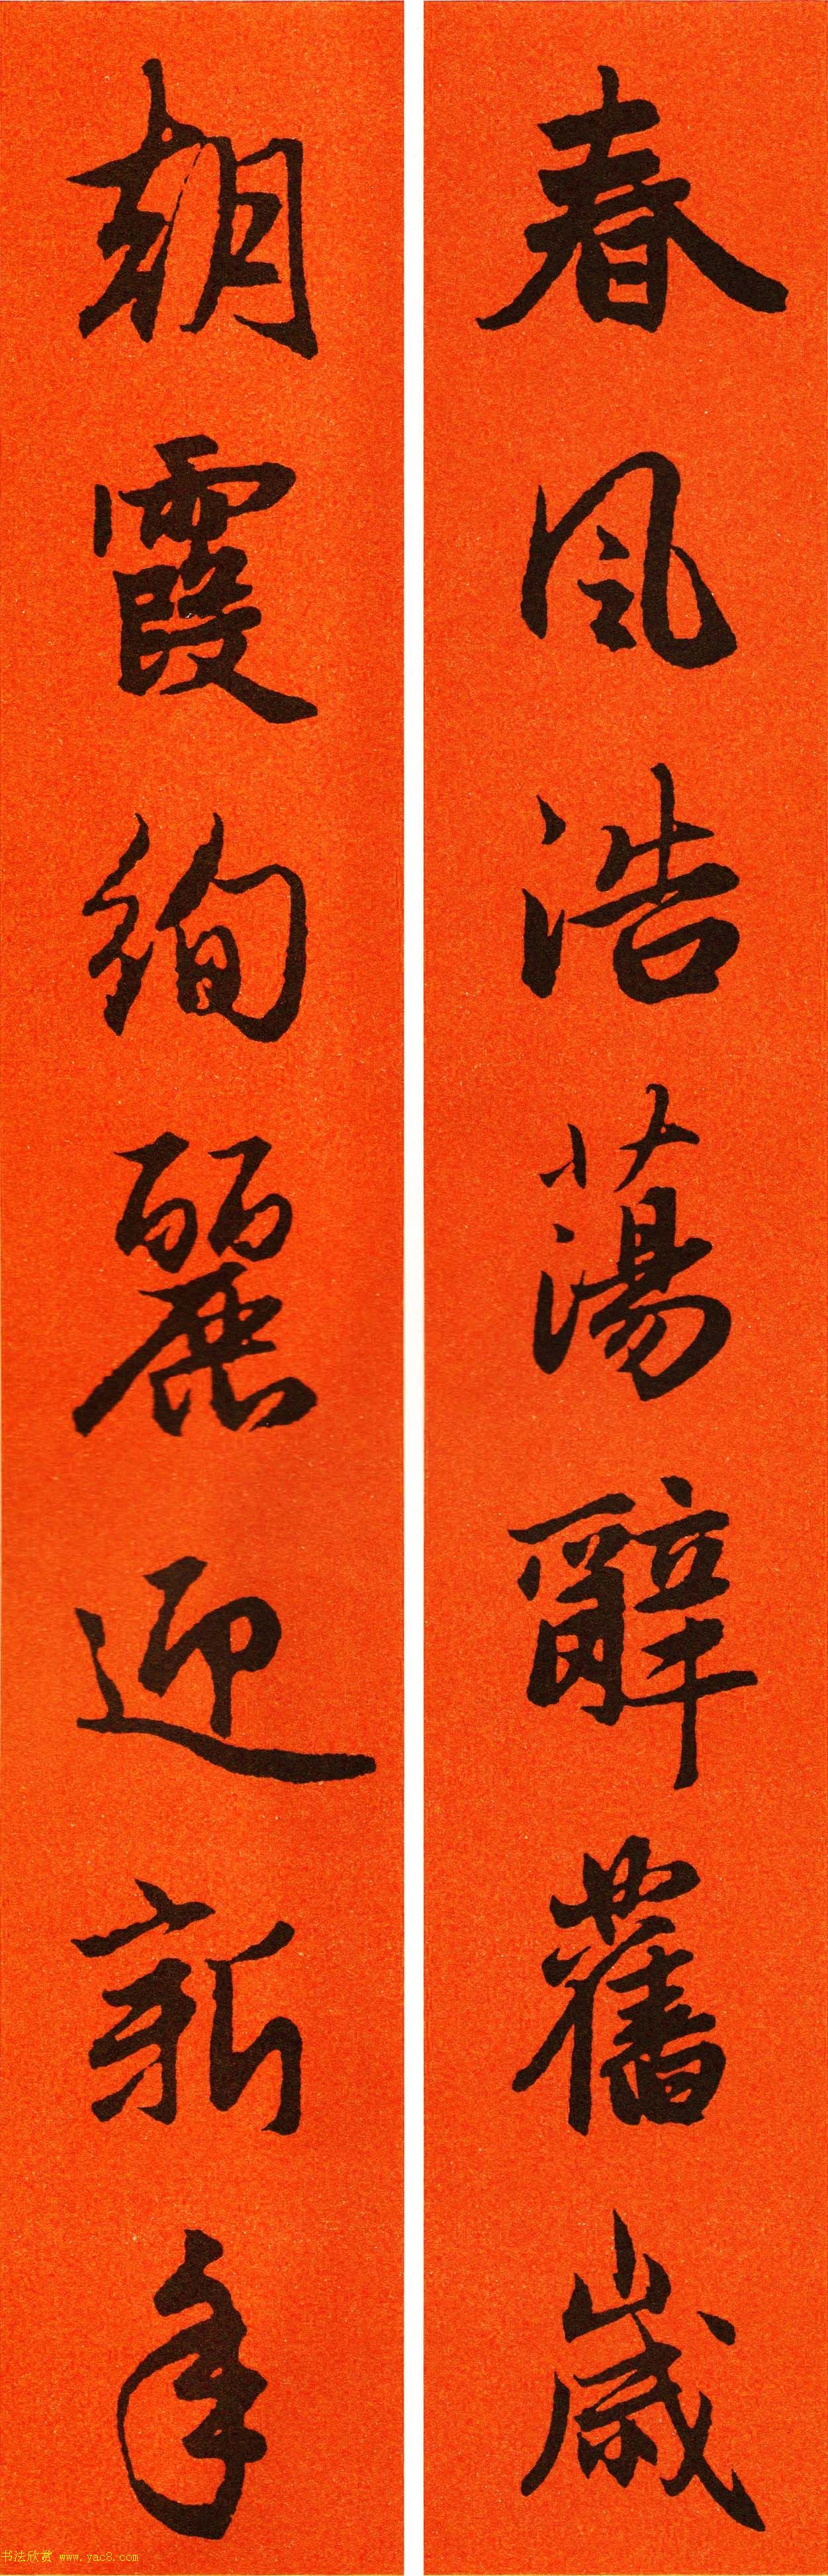 春風浩蕩辭舊歲
朝霞絢麗迎新年
书法欣赏 www.yac8.com